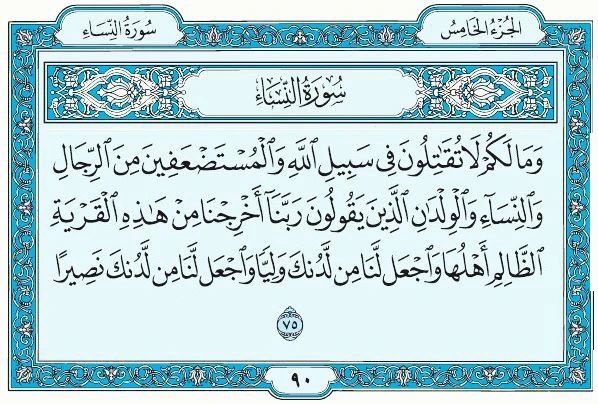 الجزء الخامس
سورة النساء
سورة النساء
وَمَا لَكُمْ لَا تُقَٰتِلُونَ فِى سَبِيلِ ٱللَّهِ وَٱلْمُسْتَضْعَفِينَ مِنَ ٱلرِّجَالِ
وَٱلنِّسَآءِ وَٱلْوِلْدَٰنِ ٱلَّذِينَ يَقُولُونَ رَبَّنَآ أَخْرِجْنَا مِنْ هَٰذِهِ ٱلْقَرْيَةِ
ٱلظَّالِمِ أَهْلُهَا وَٱجْعَل لَّنَا مِن لَّدُنكَ وَلِيًّا وَٱجْعَل لَّنَا مِن لَّدُنكَ نَصِيرًا
٧٥
٩٠